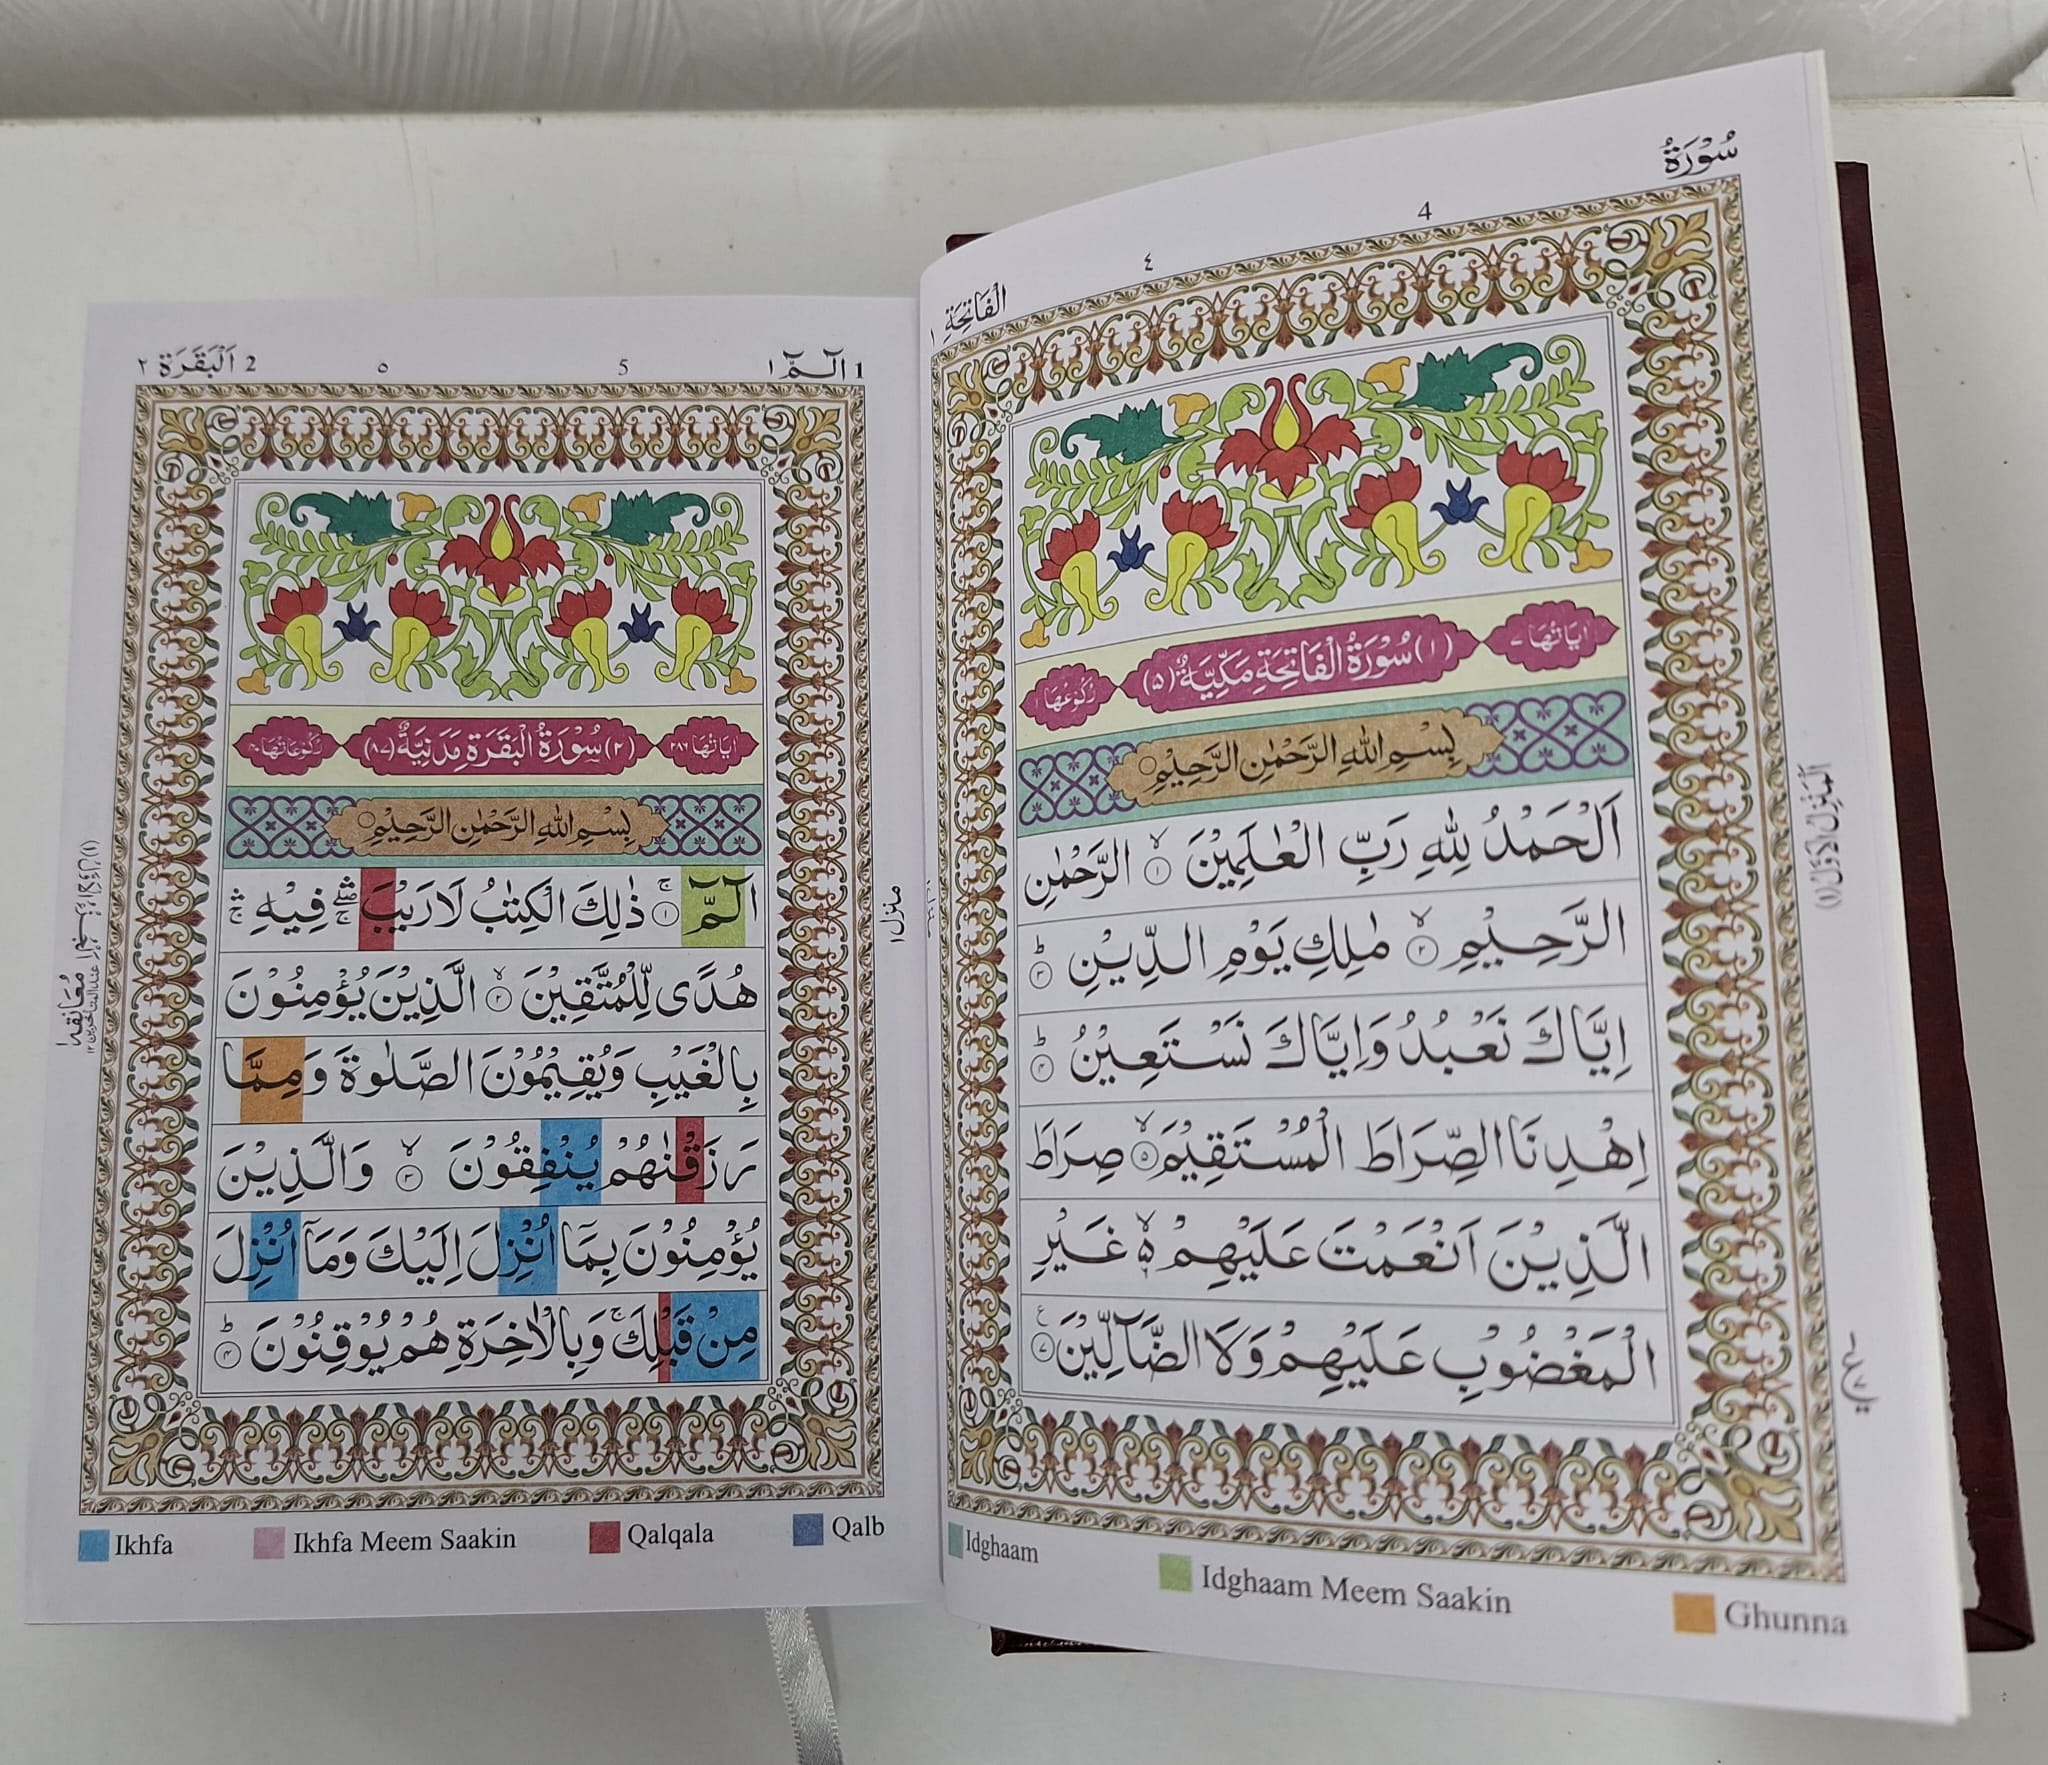 سُوْرَةُ
4
٤
الْفَاتِحَةِ ١
اٰيَاتُهَا ٧
(١) سُوْرَةُ الْفَاتِحَةِ مَكِّيَّةٌ (٥)
رُكُوْعُهَا ١
بِسْمِ اللّٰهِ الرَّحْمٰنِ الرَّحِيْمِ
اَلْحَمْدُ لِلّٰهِ رَبِّ الْعٰلَمِيْنَ ۙ ١ الرَّحْمٰنِ
الرَّحِيْمِ ۙ ٢ مٰلِكِ يَوْمِ الدِّيْنِ ؕ ٣
اِيَّاكَ نَعْبُدُ وَاِيَّاكَ نَسْتَعِيْنُ ؕ ٤
اِهْدِنَا الصِّرَاطَ الْمُسْتَقِيْمَ ۙ ٥ صِرَاطَ
الَّذِيْنَ اَنْعَمْتَ عَلَيْهِمْ ۙ۬ غَيْرِ
الْمَغْضُوْبِ عَلَيْهِمْ وَلَا الضَّآلِّيْنَ ٧
اَلْمَنْزِلُ الْاَوَّلُ (١)
Idghaam
Idghaam Meem Saakin
Ghunna
1 الٓمّٓ ١
5
٥
2 اَلْبَقَرَة ٢
اٰيَاتُهَا ٢٨٦
(٢) سُوْرَةُ الْبَقَرَةِ مَدَنِيَّةٌ (٨٧)
رُكُوْعَاتُهَا ٤٠
بِسْمِ اللّٰهِ الرَّحْمٰنِ الرَّحِيْمِ
الٓمّٓ ۚ ١ ذٰلِكَ الْكِتٰبُ لَا رَيْبَ ۛۖۚ فِيْهِ ۛۚ
هُدًى لِّلْمُتَّقِيْنَ ۙ ٢ الَّذِيْنَ يُؤْمِنُوْنَ
بِالْغَيْبِ وَيُقِيْمُوْنَ الصَّلٰوةَ وَمِمَّا
رَزَقْنٰهُمْ يُنْفِقُوْنَ ۙ ٣ وَالَّذِيْنَ
يُؤْمِنُوْنَ بِمَآ اُنْزِلَ اِلَيْكَ وَمَآ اُنْزِلَ
مِنْ قَبْلِكَ ۚ وَبِالْاٰخِرَةِ هُمْ يُوْقِنُوْنَ ؕ ٤
منزل ١
مُعَانَقَه ١
Ikhfa
Ikhfa Meem Saakin
Qalqala
Qalb